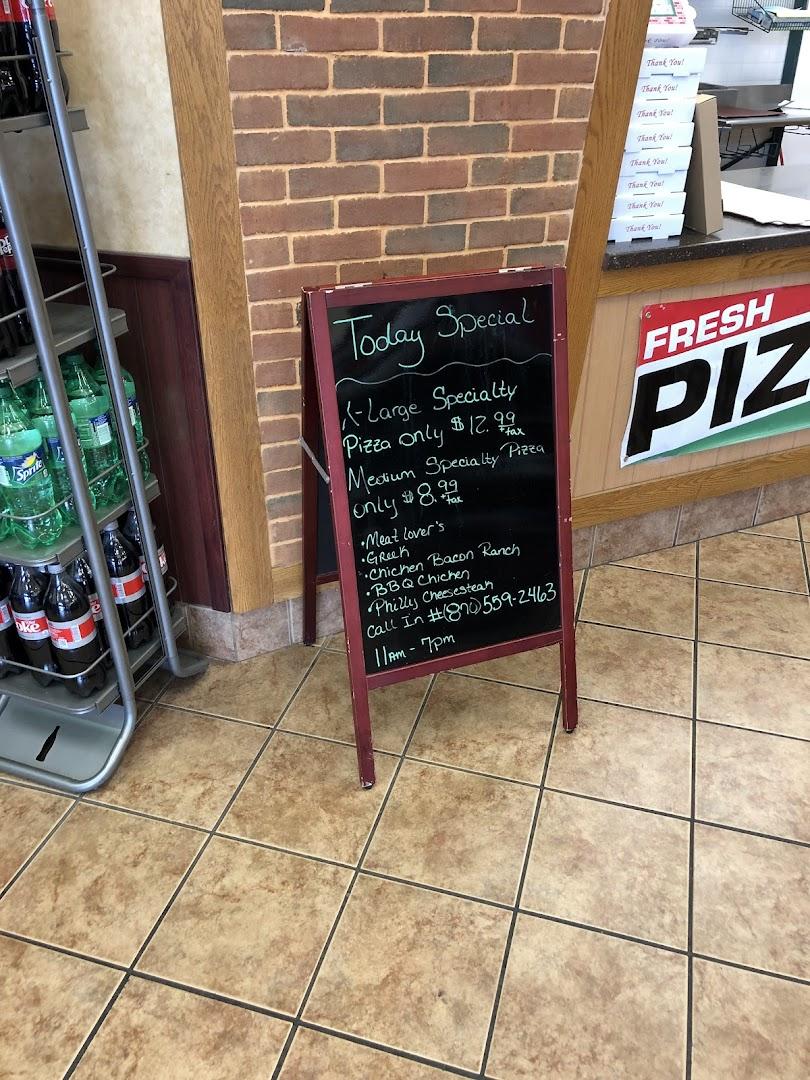 Today Special
X-Large Specialty
Pizza only $12.99
+tax
Medium Specialty Pizza
only $8.99
+tax
•Meat Lover's
•Greek
•Chicken Bacon Ranch
•BBQ Chicken
•Philly Cheesesteak
Call In #(870)559-2463
11AM - 7pm
FRESH
PIZ
Thank You!
Thank You!
Thank You!
Thank You!
Thank You!
Thank You!
Thank You!
Thank You!
Sprite
oke